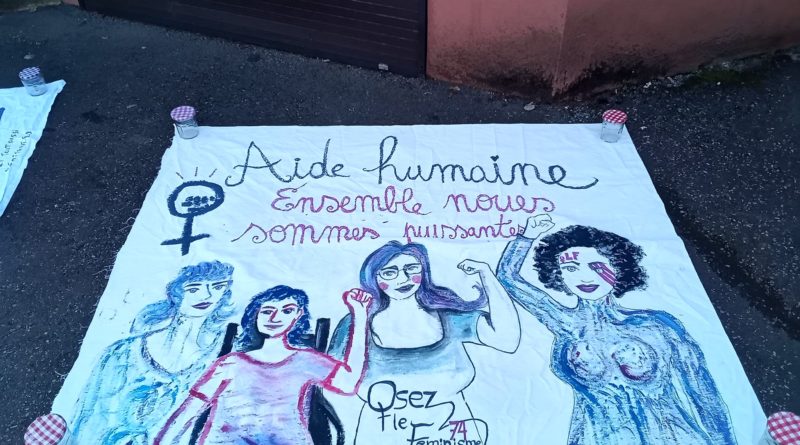 Aide humaine
Ensemble noues
sommes puissantes
OLF
Osez
le
Féminisme
74